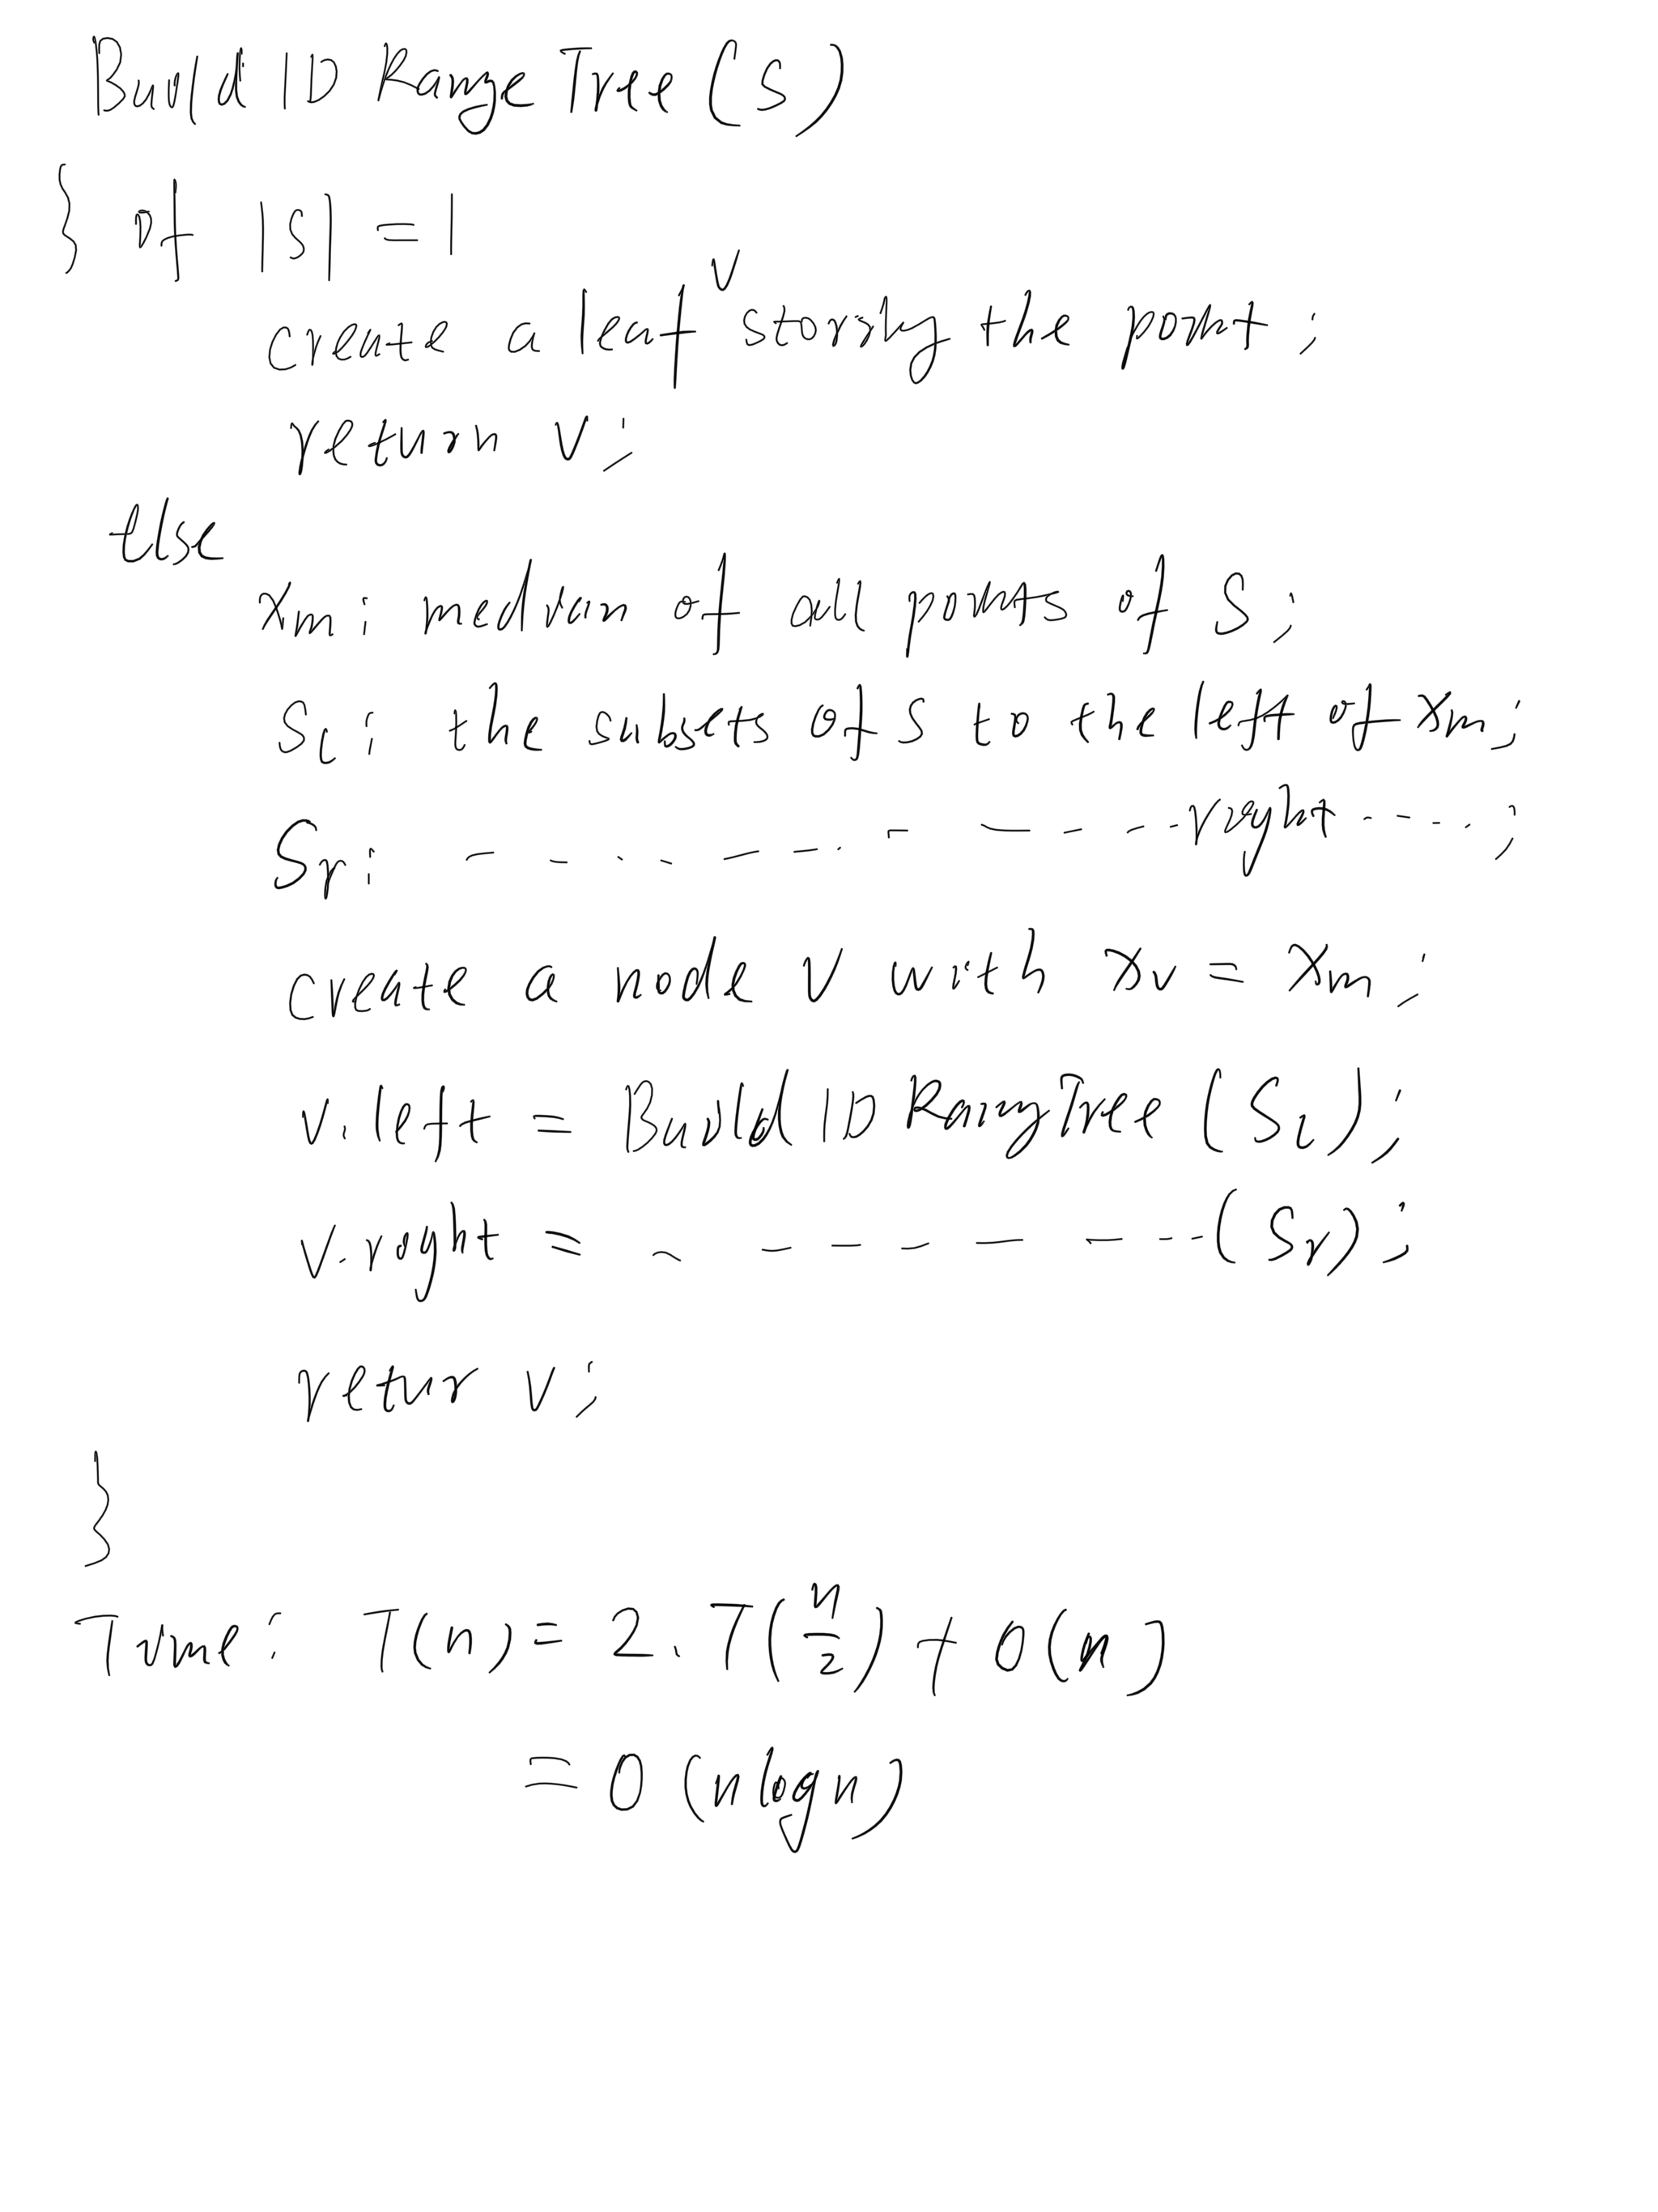 Build 1D Range Tree (S)
} if |S| = 1
create a leaf v storing the point ;
return v ;
Else
xm : median of all points of S ;
Sl : the subsets of S to the left of xm ;
Sr : - - - - - - - - - - - - right - - - - ;
create a node v with xv = xm ;
v.left = Build 1D Range Tree (Sl) ;
v.right = - - - - - - - - (Sr) ;
retur v ;
}
Time : T(n) = 2 . T(n/2) + O(n)
= O (n log n)